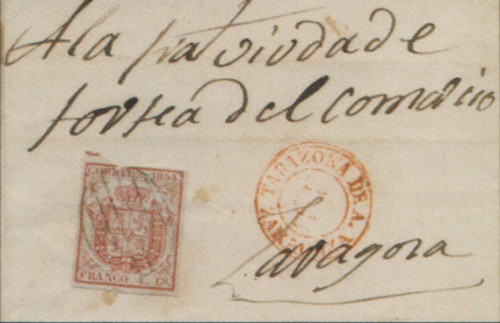 A la Sra viuda de
forsea del Comercio
CORREOS 1854
FRANCO 4. Cs.
TARAZONA DE A.
Zaragora